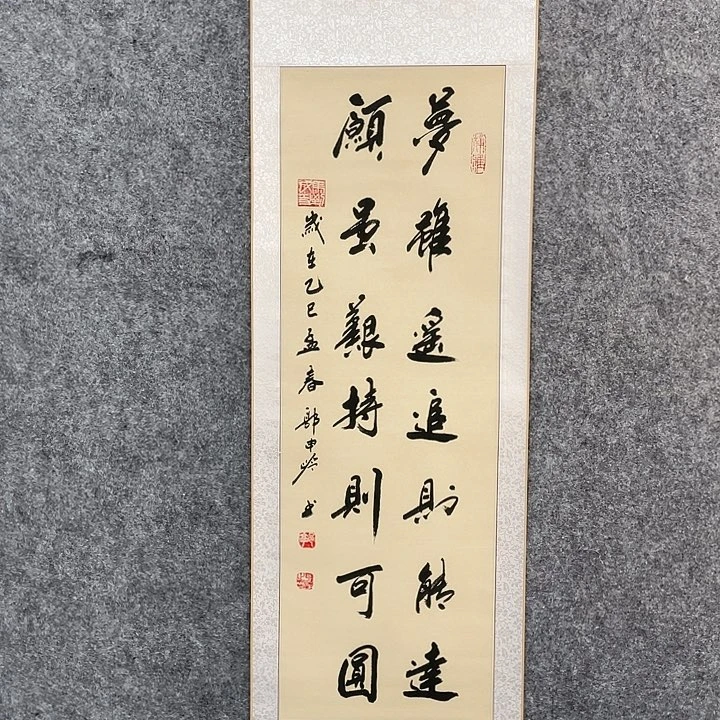 夢雖遥追則能達
願虽艱持則可圓
歲在乙巳孟春郭申岭书